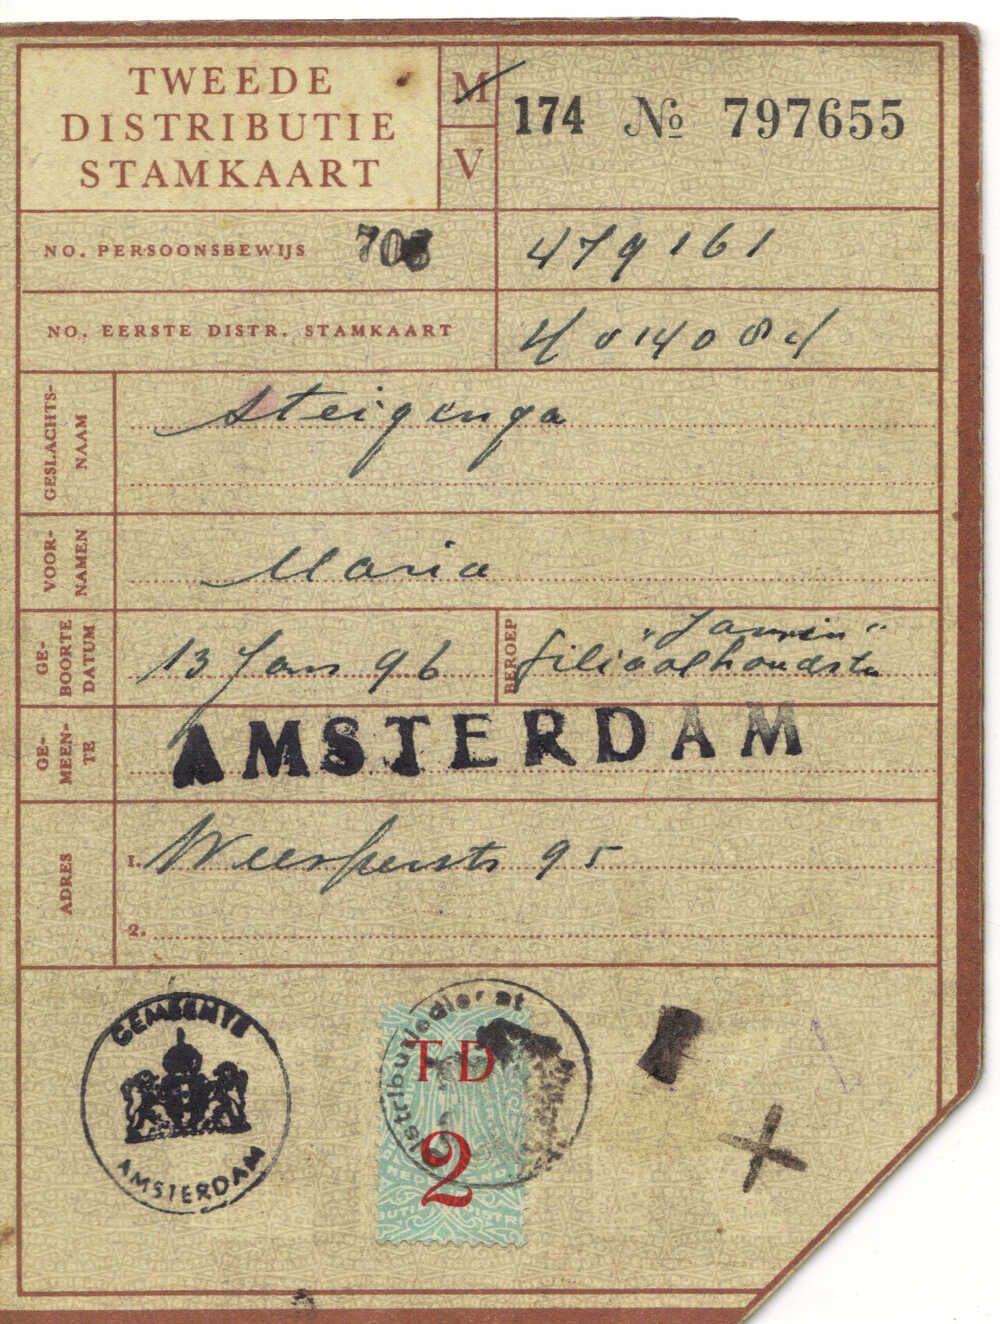 TWEEDE
DISTRIBUTIE
STAMKAART
M
V
174 № 797655
NO. PERSOONSBEWIJS
479161
NO. EERSTE DISTR. STAMKAART
GESLACHTS-
NAAM
Steigenga
VOOR-
NAMEN
Maria
GE-
BOORTE
DATUM
13 Jan 96
BEROEP
"Jamin"
filiaalhoudster
GE-
MEEN-
TE
AMSTERDAM
ADRES
1. Weesperstr 95
2.
GEMEENTE
AMSTERDAM
Distributiedienst
TD
2